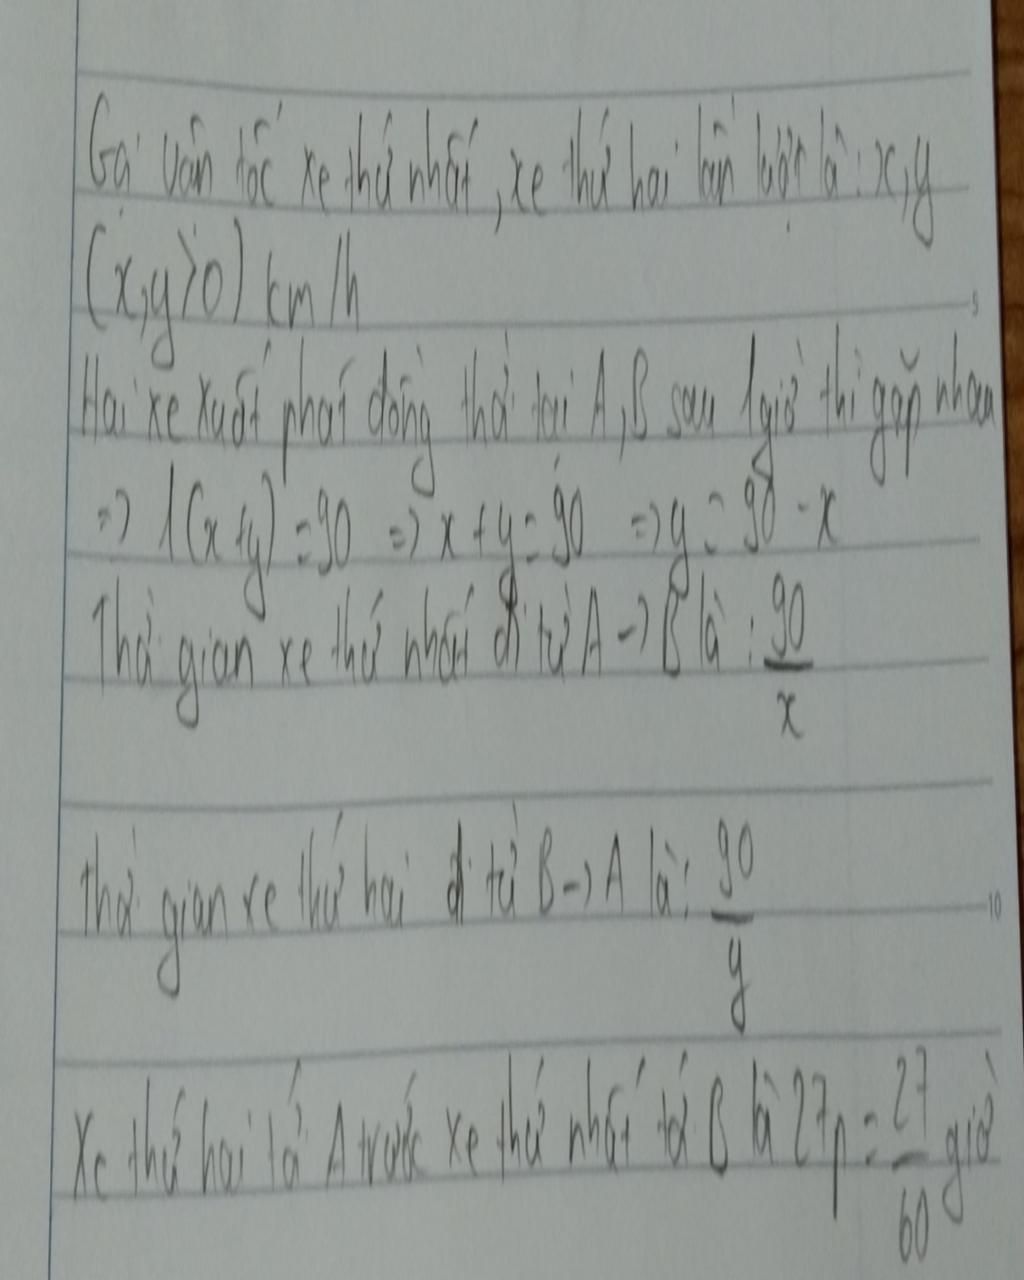 Gọi vận tốc xe thứ nhất, xe thứ hai lần lượt là: x, y
(x, y > 0) km/h
Hai xe xuất phát đồng thời tại A, B sau 1 giờ thì gặp nhau
=> 1(x + y) = 90 => x + y = 90 => y = 90 - x
Thời gian xe thứ nhất đi từ A -> B là: 90/x
thời gian xe thứ hai đi từ B -> A là: 90/y
Xe thứ hai tới A trước xe thứ nhất tới B là 27p = 27/60 giờ
5
10